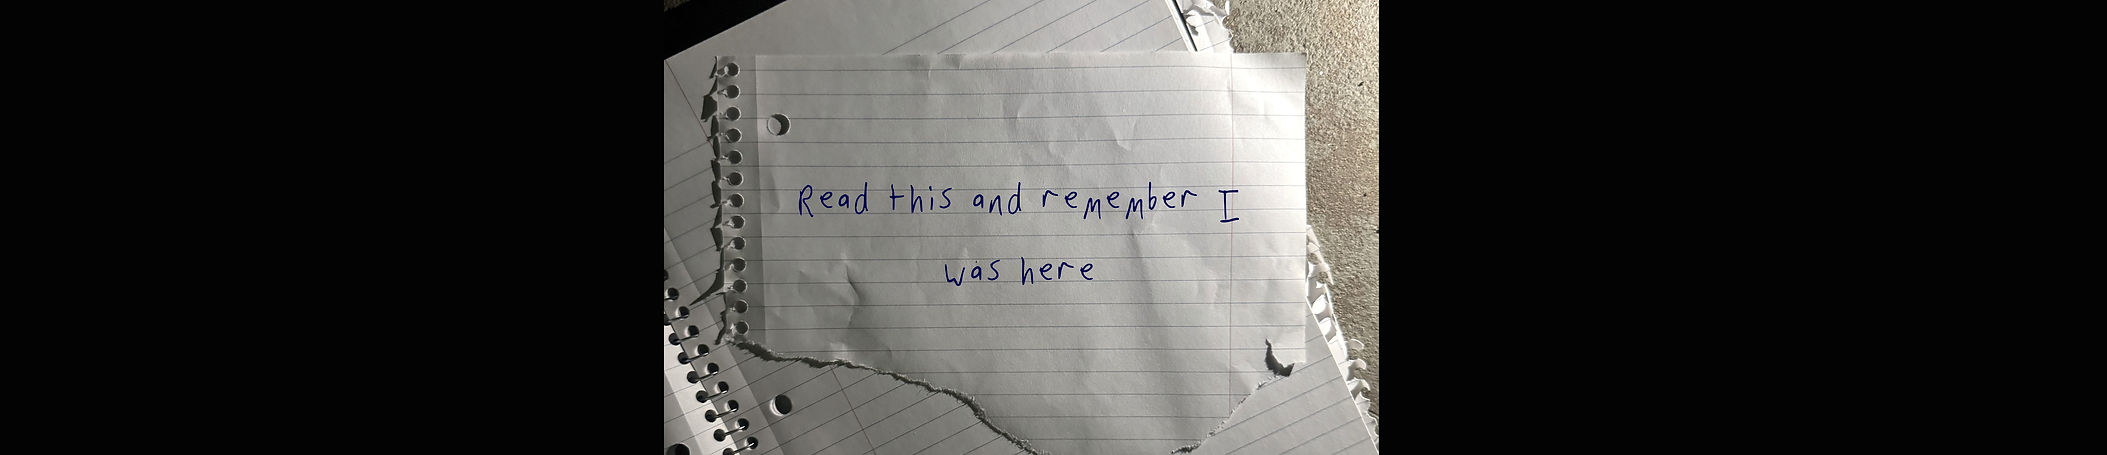 Read this and remember I
was here